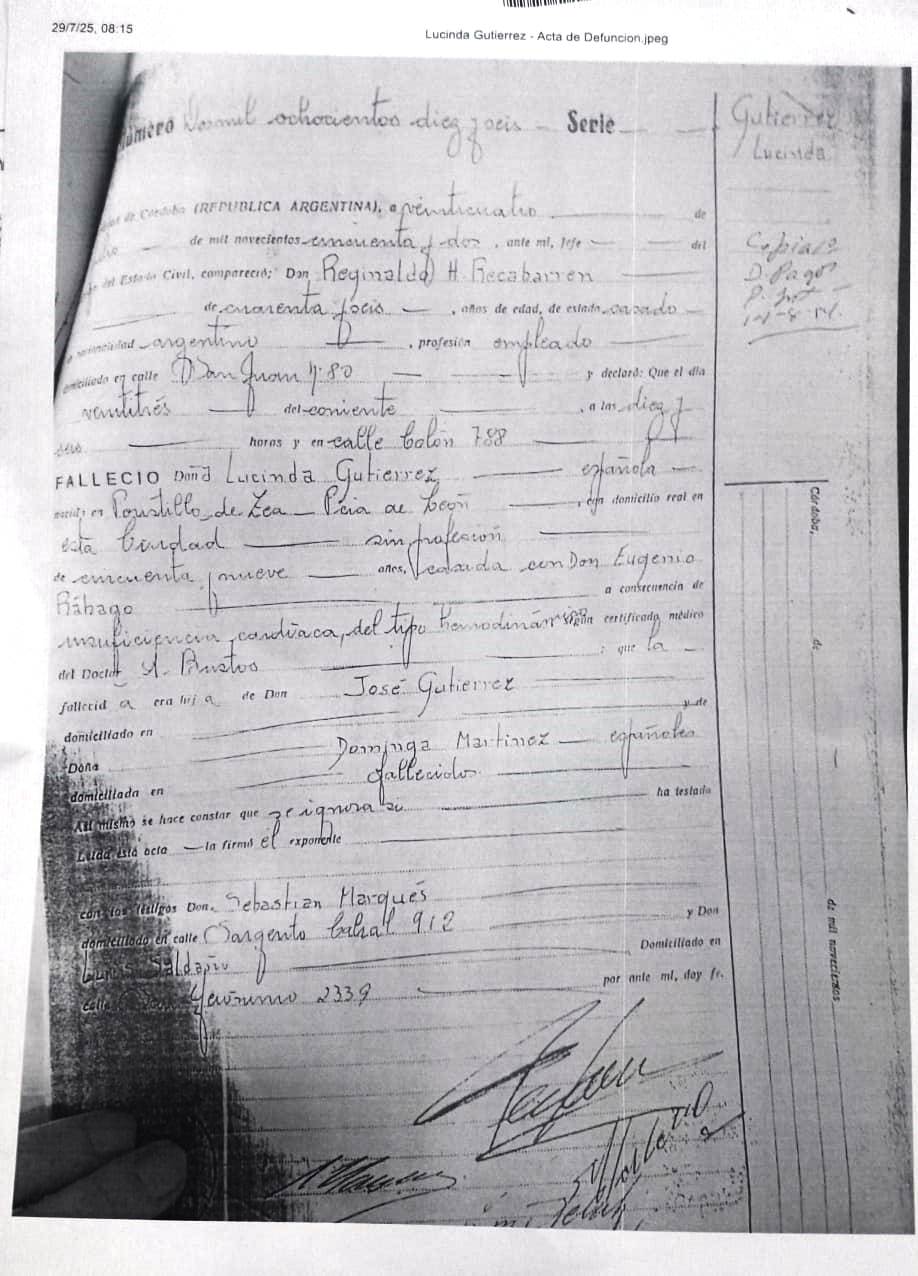 29/7/25, 08:15
Lucinda Gutierrez - Acta de Defuncion.jpeg
número ochocientos diez y seis Serie
Gutierrez
Lucinda
de Córdoba (REPUBLICA ARGENTINA), a veinticuatro de
de mil novecientos cincuenta y dos, ante mí, Jefe del
del Estado Civil, compareció; Don Reginaldo H. Recabarren
de cuarenta y seis, años de edad, de estado casado
nacionalidad argentino, profesión empleado
domiciliado en calle San Juan 480 y declaró: Que el día
veintitrés del corriente, a las diez y
horas y en calle Colón 788
FALLECIO Doña Lucinda Gutierrez española
nacida en de Cea Pcia de León, con domicilio real en
esta Ciudad sin profesión
de cincuenta y nueve años, casada con Don Eugenio
Rábago a consecuencia de
insuficiencia cardíaca, del tipo según certificado médico
del Doctor A. Bustos; que la
fallecida era hija de Don José Gutierrez
domiciliado en y de
Doña Dominga Martinez españoles
domiciliada en fallecidos
Así mismo se hace constar que se ignora si ha testado
Leída esta acta la firmó el exponente
con los testigos Don. Sebastian Marqués
domiciliado en calle Sargento Cabral 912 y Don
Luis Domiciliado en
calle Gerónimo 2339 por ante mí, doy fe.
Córdoba, de de mil novecientos